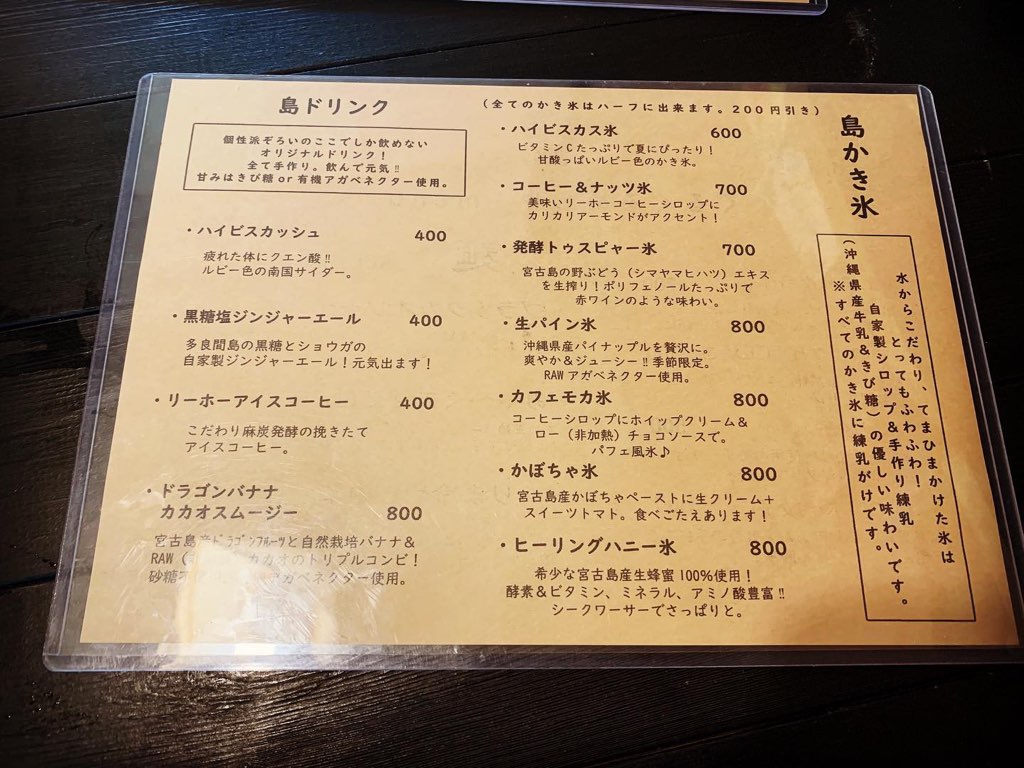 島ドリンク
個性派ぞろいのここでしか飲めない
オリジナルドリンク！
全て手作り。飲んで元気‼
甘みはきび糖 or 有機アガベネクター使用。
・ハイビスカッシュ 400
疲れた体にクエン酸‼
ルビー色の南国サイダー。
・黒糖塩ジンジャーエール 400
多良間島の黒糖とショウガの
自家製ジンジャーエール！元気出ます！
・リーホーアイスコーヒー 400
こだわり麻炭発酵の挽きたて
アイスコーヒー。
・ドラゴンバナナ
カカオスムージー 800
宮古島産ﾄﾞﾗｺﾞﾝﾌﾙｰﾂと自然栽培バナナ＆
RAW カカオのトリプルコンビ！
砂糖 アガベネクター使用。
（全てのかき氷はハーフに出来ます。200円引き）
島かき氷
水からこだわり、てまひまかけた氷は
とってもふわふわ！
自家製シロップ＆手作り練乳
（沖縄県産牛乳＆きび糖）の優しい味わいです。
※すべてのかき氷に練乳がけです。
・ハイビスカス氷 600
ビタミンCたっぷりで夏にぴったり！
甘酸っぱいルビー色のかき氷。
・コーヒー＆ナッツ氷 700
美味いリーホーコーヒーシロップに
カリカリアーモンドがアクセント！
・発酵トゥスピャー氷 700
宮古島の野ぶどう（シマヤマヒハツ）エキス
を生搾り！ポリフェノールたっぷりで
赤ワインのような味わい。
・生パイン氷 800
沖縄県産パイナップルを贅沢に。
爽やか＆ジューシー‼季節限定。
RAWアガベネクター使用。
・カフェモカ氷 800
コーヒーシロップにホイップクリーム＆
ロー（非加熱）チョコソースで。
パフェ風氷♪
・かぼちゃ氷 800
宮古島産かぼちゃペーストに生クリーム＋
スイーツトマト。食べごたえあります！
・ヒーリングハニー氷 800
希少な宮古島産生蜂蜜100%使用！
酵素＆ビタミン、ミネラル、アミノ酸豊富‼
シークワーサーでさっぱりと。